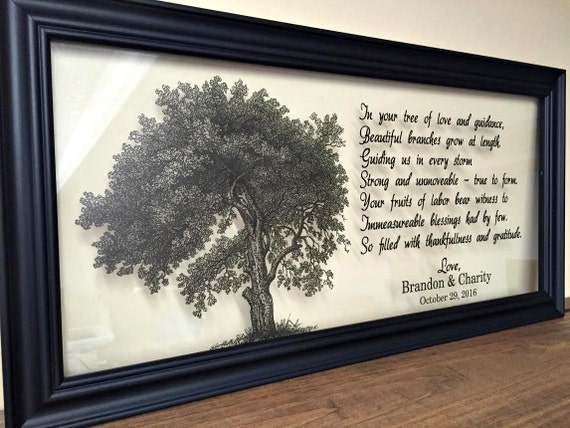 In your tree of love and guidance,
Beautiful branches grow at length.
Guiding us in every storm
Strong and unmoveable – true to form.
Your fruits of labor bear witness to
Immeasureable blessings had by few.
So filled with thankfullness and gratitude.
Love,
Brandon & Charity
October 29, 2016